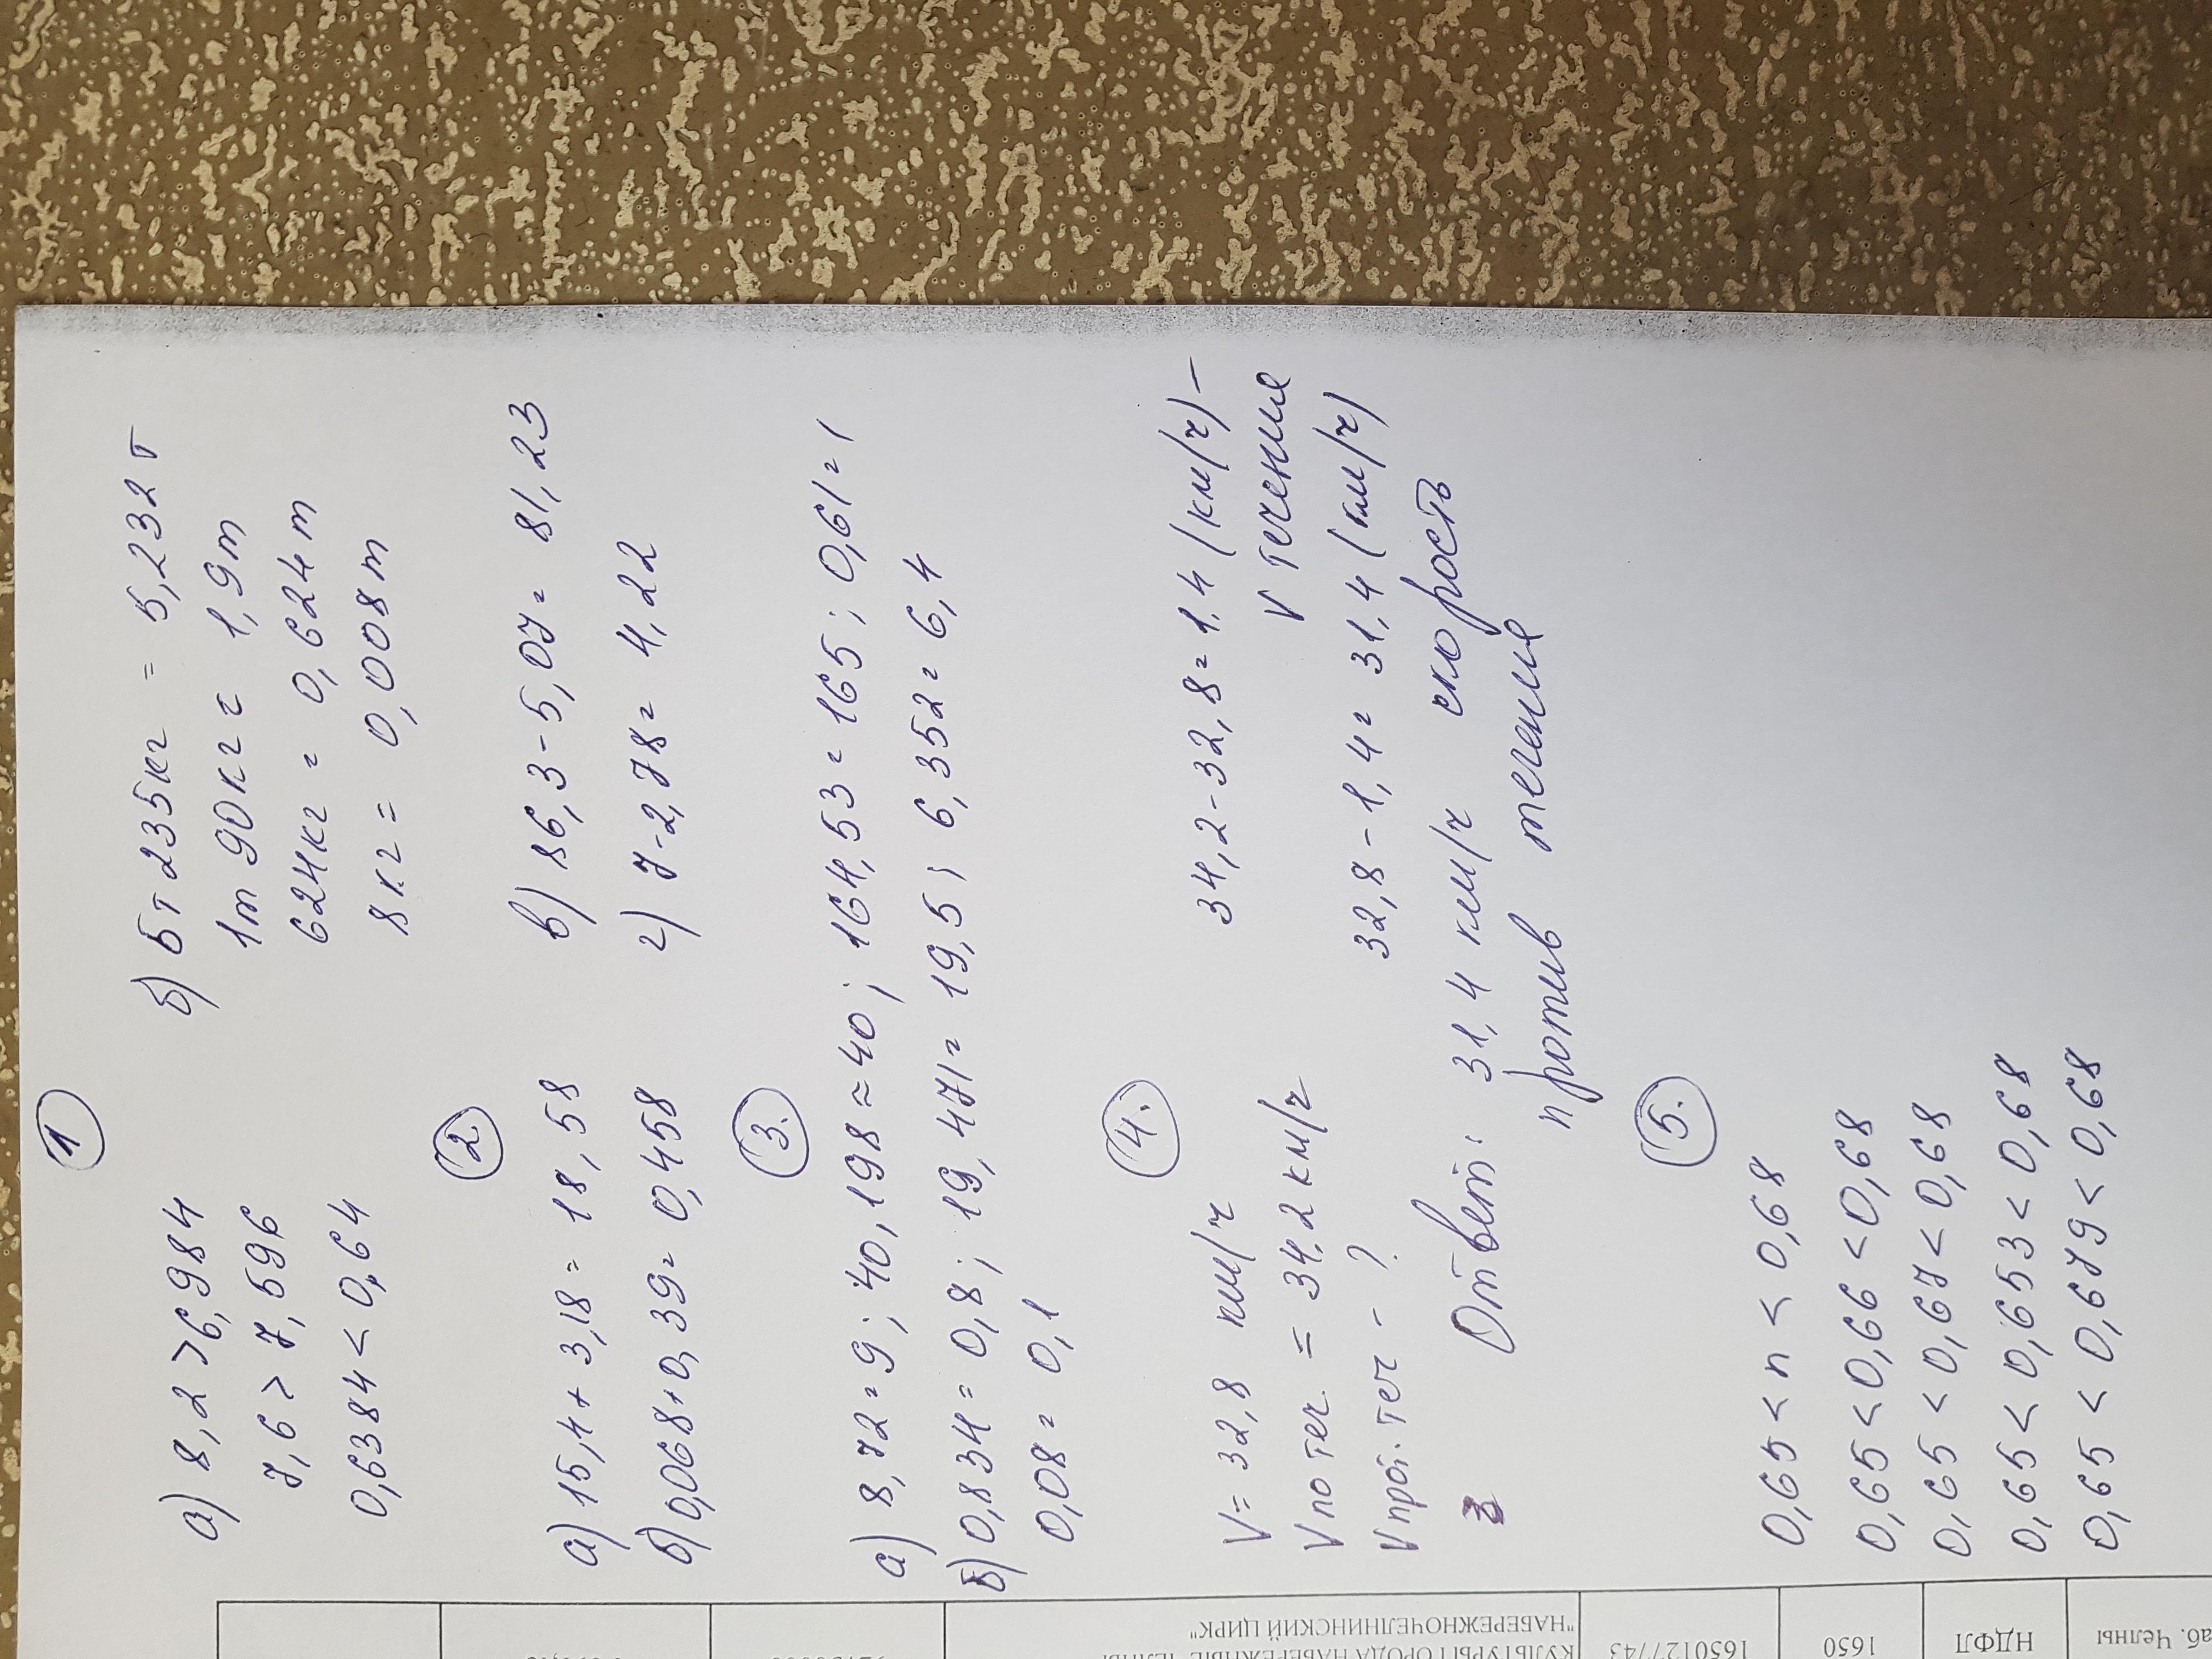 1
а) 8,2 > 6,984
7,6 > 7,596
0,6384 < 0,64
б) 5т 235кг = 5,232т
1т 90кг = 1,9т
624кг = 0,624т
8кг = 0,008т
2.
а) 15,4 + 3,18 = 18,58
б) 0,068 + 0,39 = 0,458
в) 86,3 - 5,07 = 81,23
г) 7 - 2,78 = 4,22
3.
а) 8,72 = 9; 40,198 ≈ 40; 164,53 = 165; 0,61 = 1
б) 0,834 = 0,8; 19,471 = 19,5; 6,352 = 6,4
0,08 = 0,1
4.
V = 32,8 км/ч
V по теч = 34.2 км/ч
V прот. теч - ?
34,2 - 32,8 = 1.4 (км/ч) -
V течения
32,8 - 1,4 = 31,4 (км/ч)
Ответ: 31,4 км/ч скорость
против течения
5.
0,65 < n < 0,68
0,65 < 0,66 < 0,68
0,65 < 0,67 < 0,68
0,65 < 0,653 < 0,68
0,65 < 0,679 < 0,68
аб. Челны
НДФЛ
1650
1650127743
КУЛЬТУРЫ ГОРОДА НАБЕРЕЖНЫЕ ЧЕЛНЫ
"НАБЕРЕЖНОЧЕЛНИНСКИЙ ЦИРК"